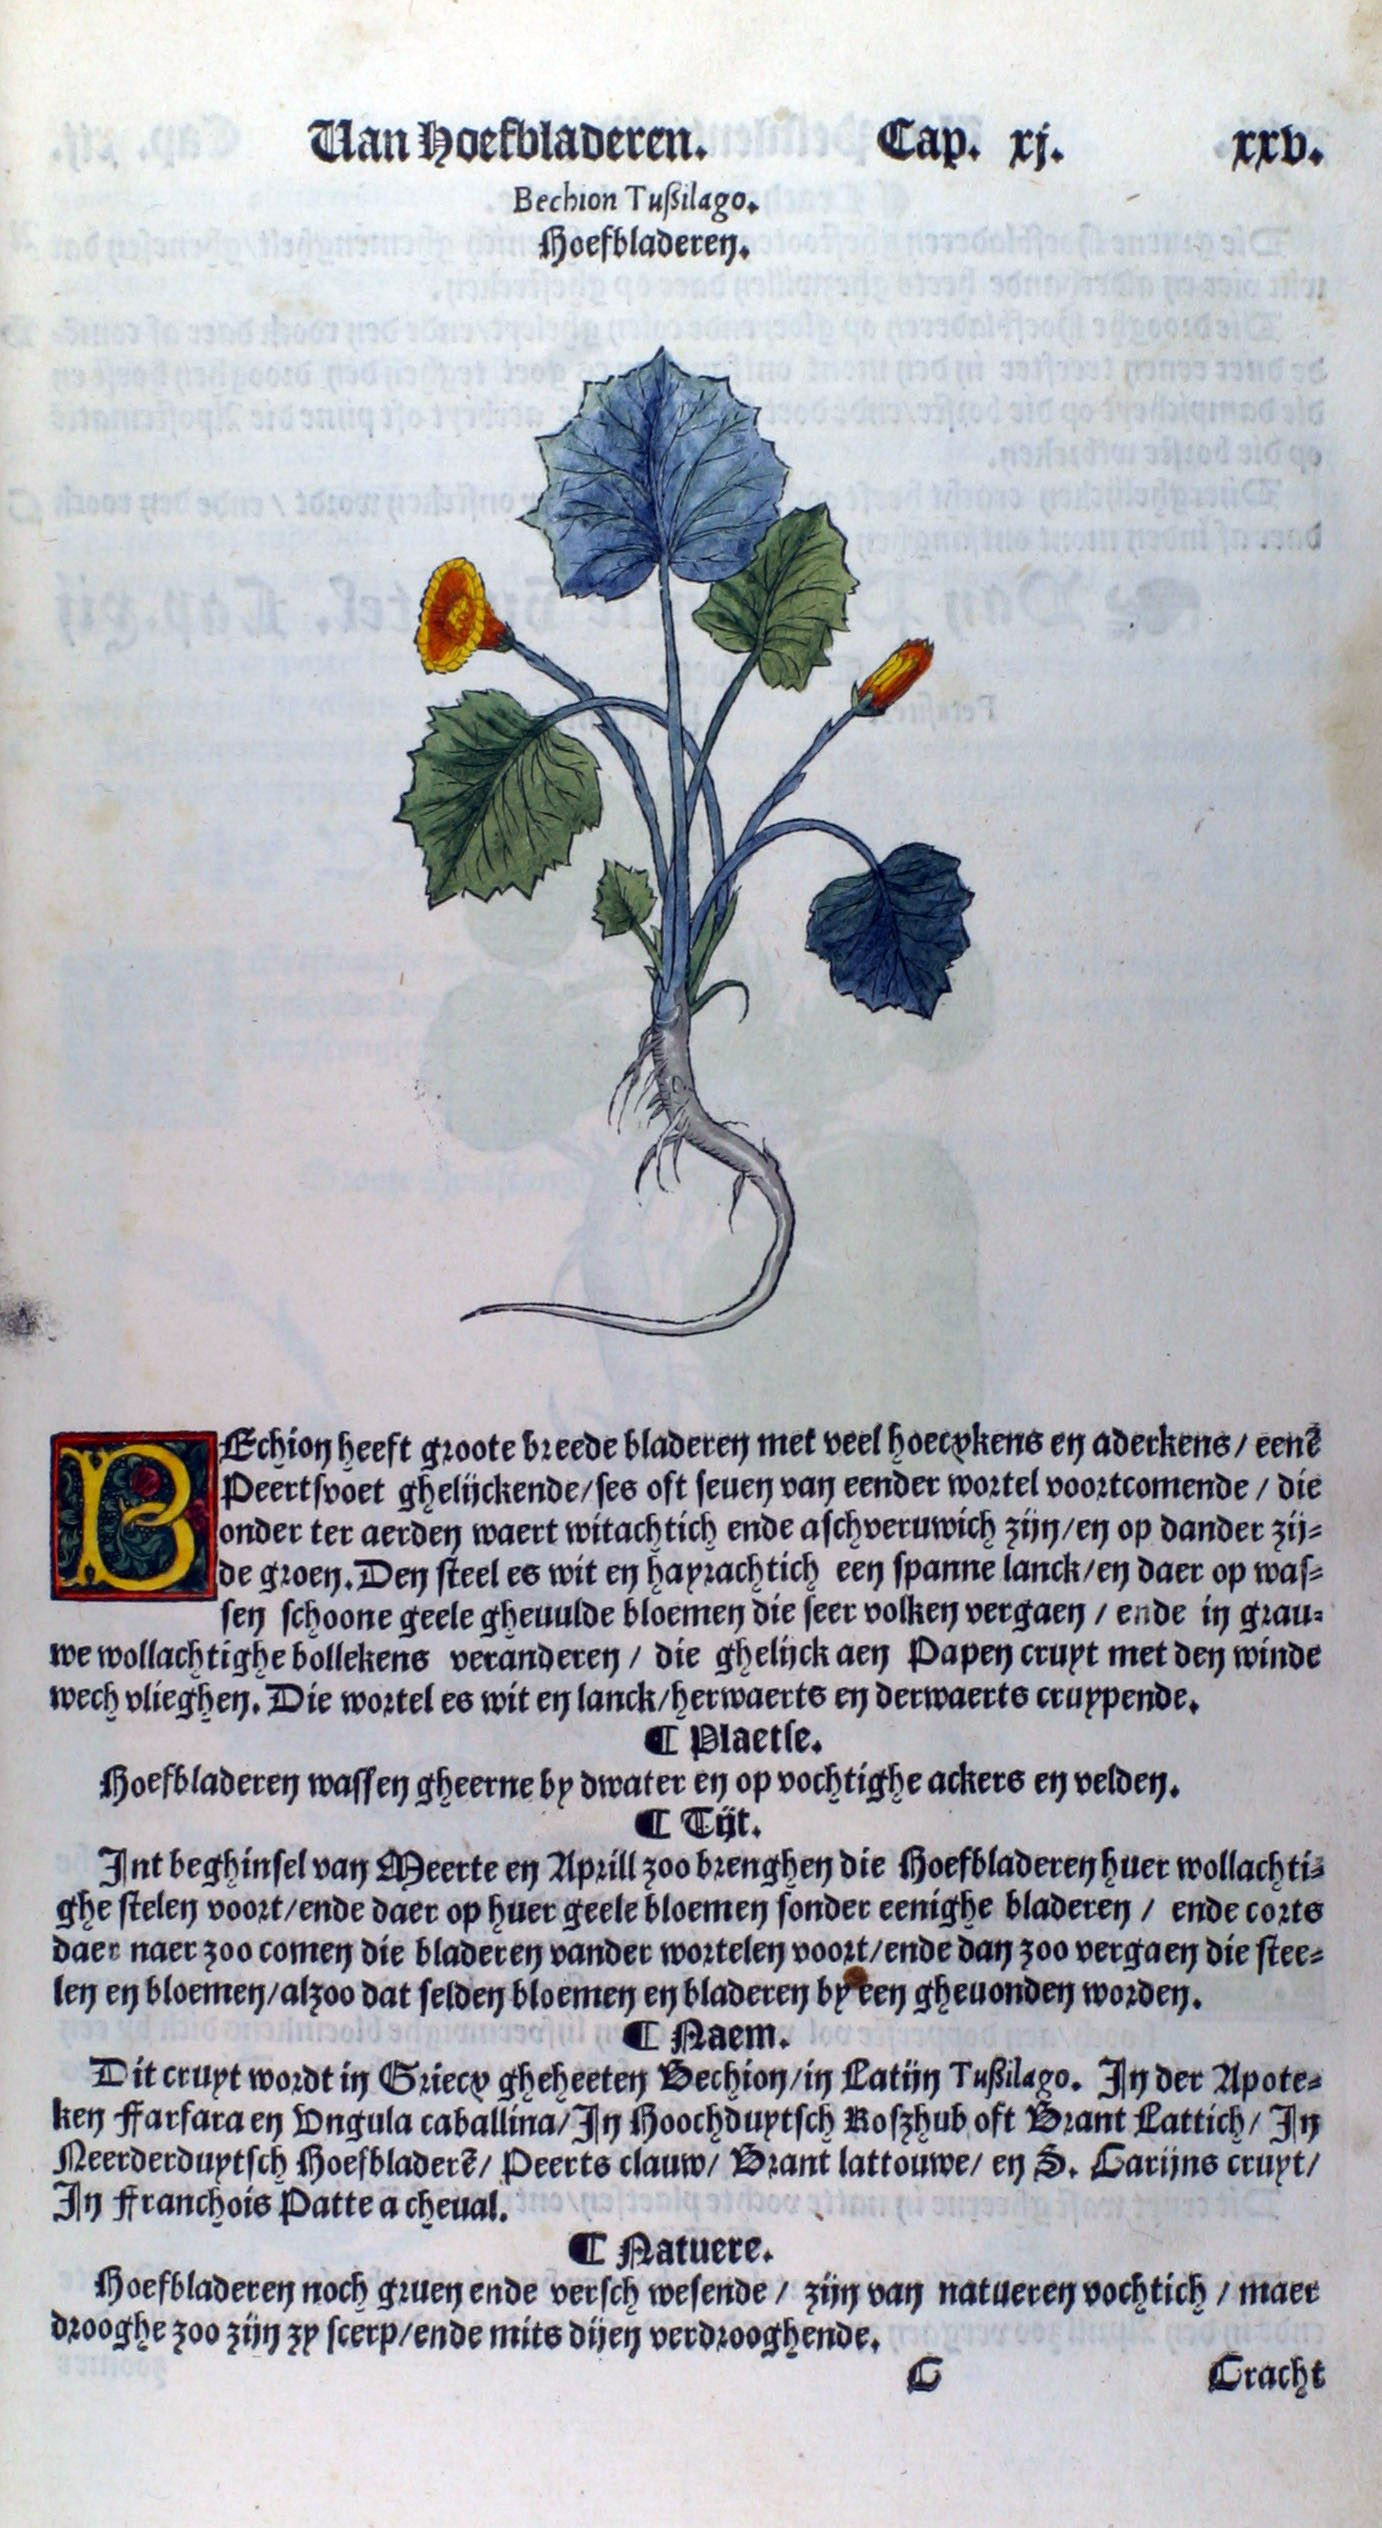 Van Hoefbladeren. Cap. xj. xxv.
Bechion Tußilago.
Hoefbladeren.
BEchion heeft groote breede bladeren met veel hoecxkens en aderkens / eenẽ
Peertsvoet ghelijckende/ses oft seuen van eender wortel voortcomende / die
onder ter aerden waert witachtich ende aschveruwich zijn/en op dander zij-
de groen. Den steel es wit en hayrachtich een spanne lanck/en daer op was-
sen schoone geele gheuulde bloemen die seer volken vergaen / ende in grau-
we wollachtighe bollekens veranderen / die ghelijck aen Papen cruyt met den winde
wech vlieghen. Die wortel es wit en lanck/herwaerts en derwaerts cruypende.
¶ Plaetse.
Hoefbladeren wassen gheerne by dwater en op vochtighe ackers en velden.
¶ Tijt.
Int beghinsel van Meerte en Aprill zoo brenghen die Hoefbladeren huer wollachti-
ghe stelen voort/ende daer op huer geele bloemen sonder eenighe bladeren / ende corts
daer naer zoo comen die bladeren vander wortelen voort/ende dan zoo vergaen die stee-
len en bloemen/alzoo dat selden bloemen en bladeren by een gheuonden worden.
¶ Naem.
Dit cruyt wordt in Griecx gheheeten Bechion/in Latijn Tußilago. In der Apote-
ken Farfara en Vngula caballina/In Hoochduytsch Roszhub oft Brant Lattich/ In
Neerderduytsch Hoefbladerẽ/ Peerts clauw/ Brant lattouwe/ en S. Carijns cruyt/
In Franchois Patte a cheual.
¶ Natuere.
Hoefbladeren noch gruen ende versch wesende / zijn van natueren vochtich / maer
drooghe zoo zijn zy scerp/ende mits dijen verdrooghende.
C Cracht